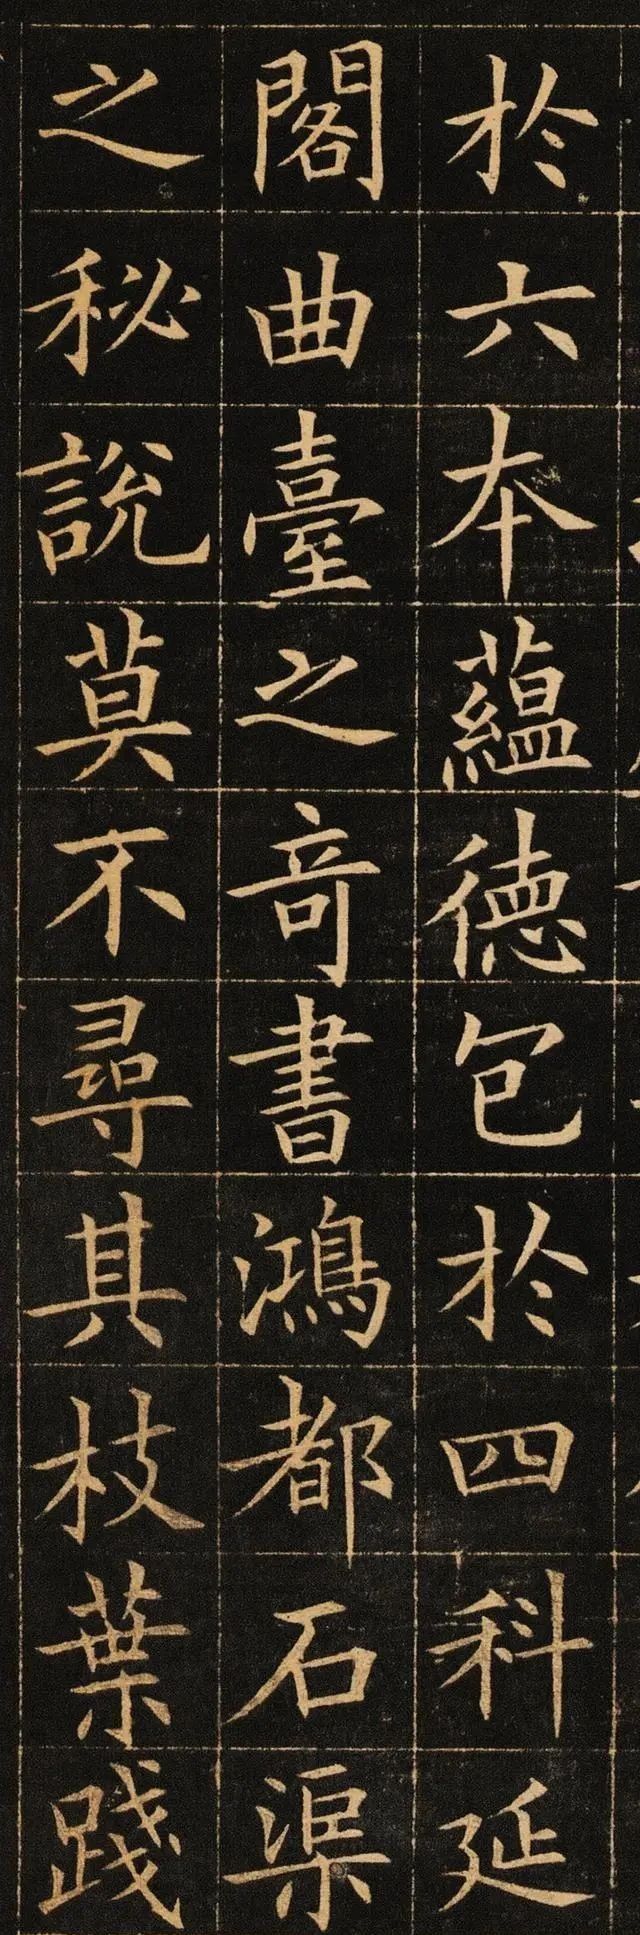 於六本蘊德包於四科延
閣曲臺之奇書鴻都石渠
之秘說莫不尋其枝葉踐